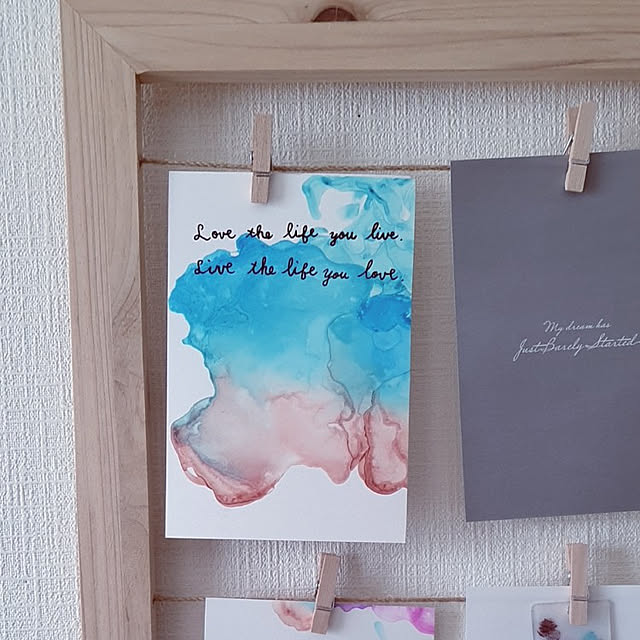 Love the life you live.
Live the life you love.
My dream has
Just Barely Started